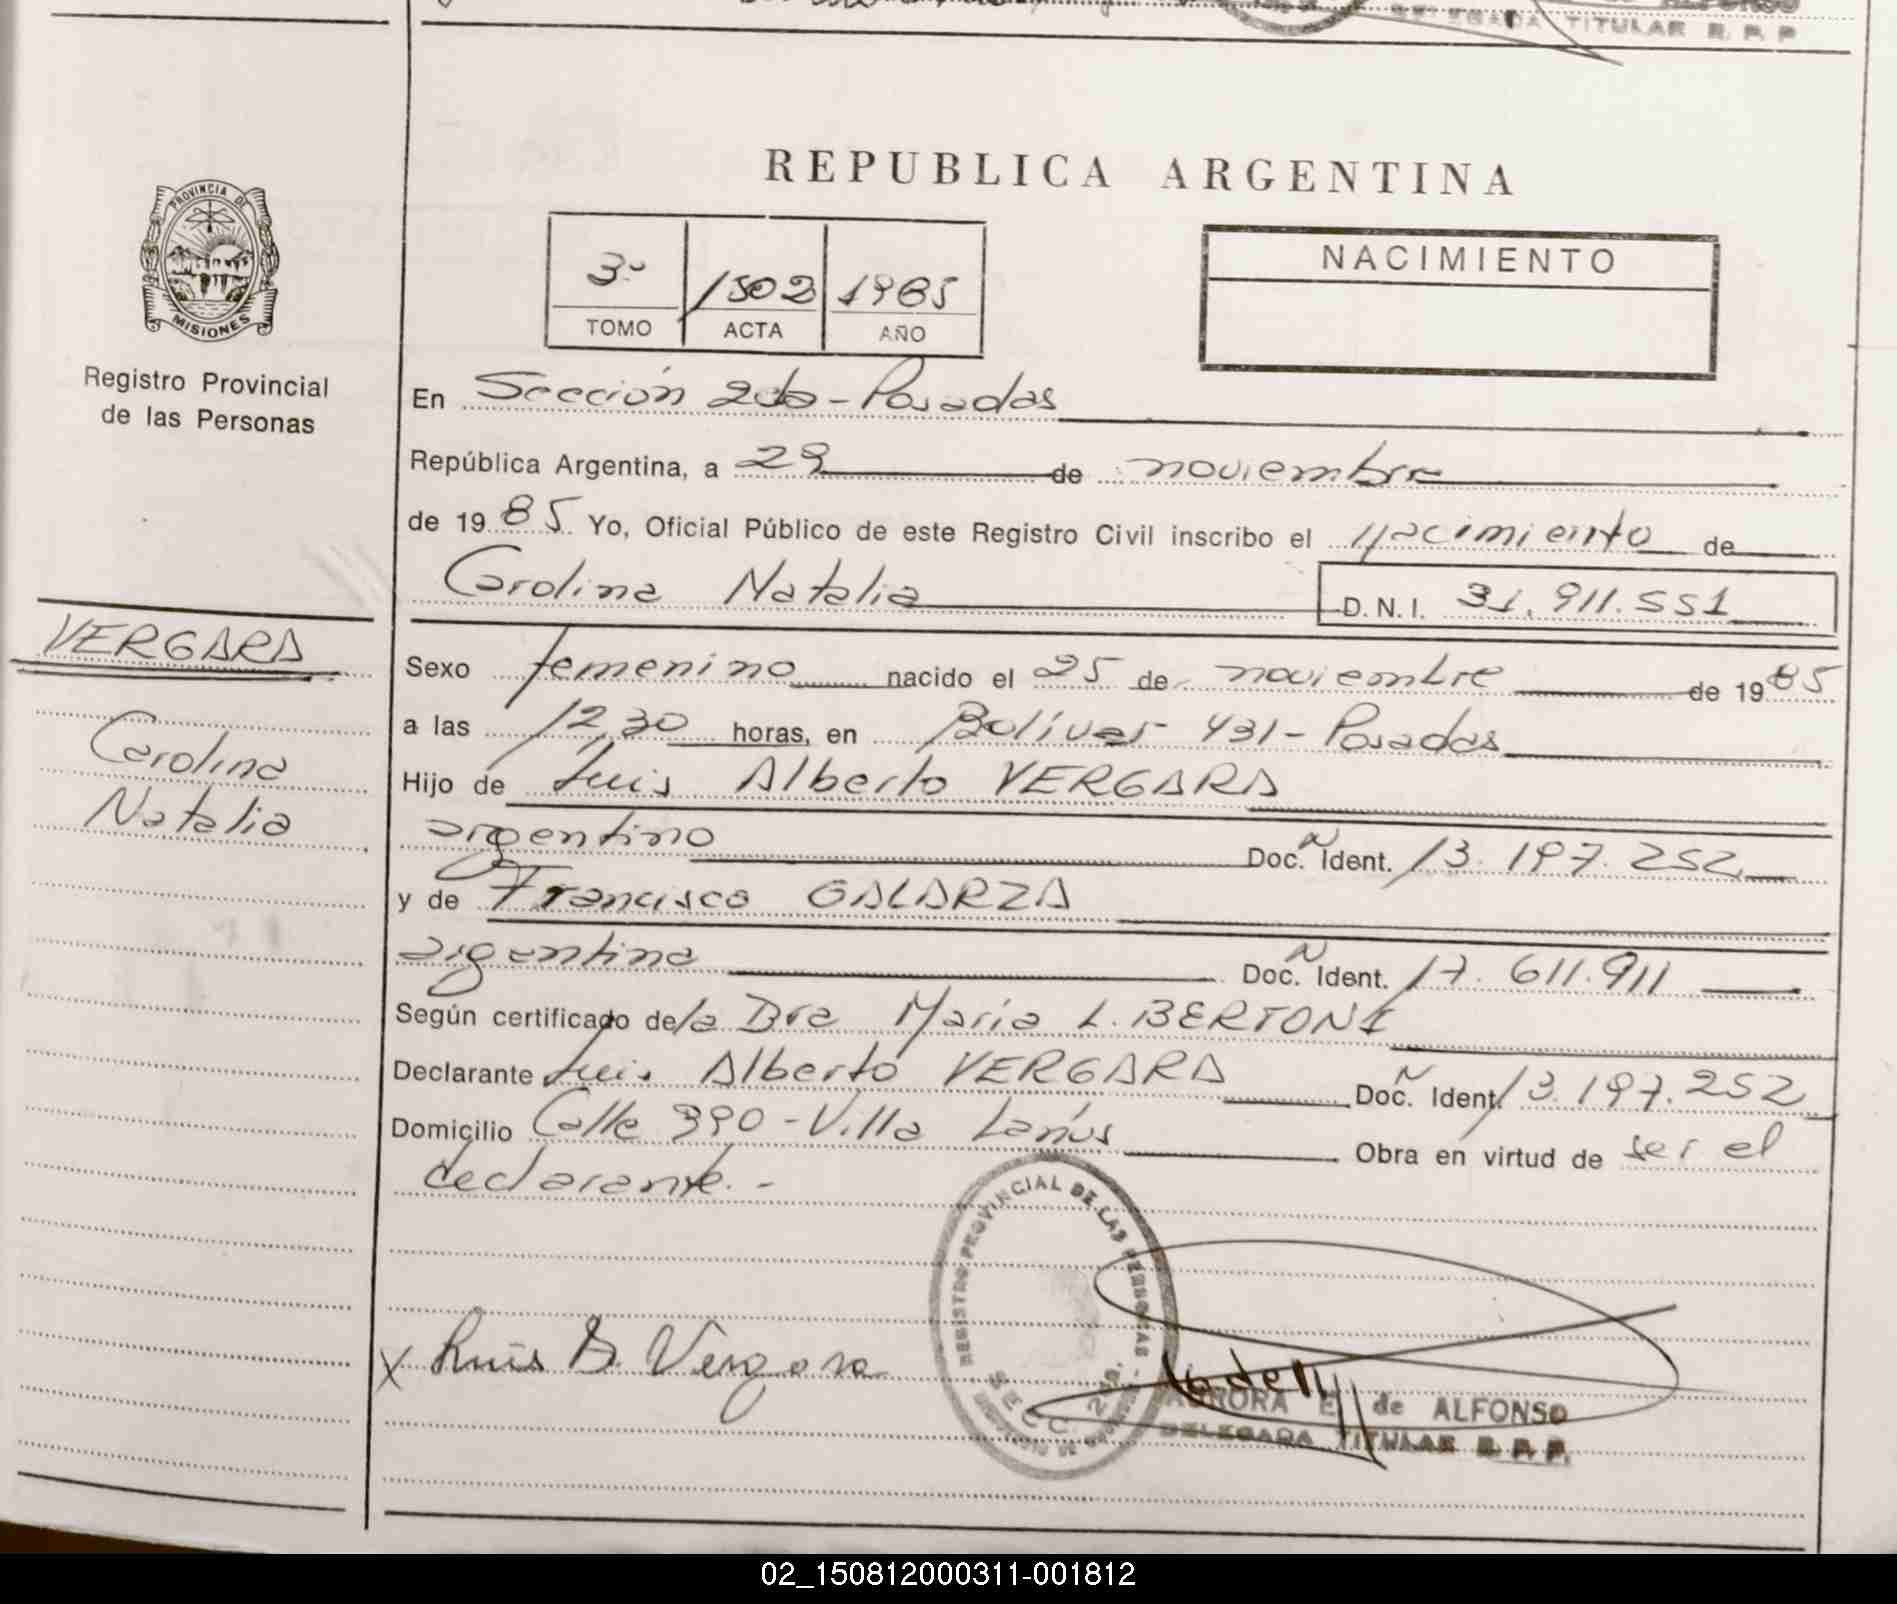 DELEGADA TITULAR R. P. P
REPUBLICA ARGENTINA
PROVINCIA DE
MISIONES
Registro Provincial
de las Personas
3º 1502 1985
TOMO ACTA AÑO
NACIMIENTO
En Sección 2da - Posadas
República Argentina, a 29 de noviembre
de 19 85 Yo, Oficial Público de este Registro Civil inscribo el nacimiento de
Carolina Natalia D.N.I. 31.911.551
VERGARA
Carolina
Natalia
Sexo femenino nacido el 25 de noviembre de 19 85
a las 12,30 horas, en Bolívar 431 - Posadas
Hijo de Luis Alberto VERGARA
argentino Doc. Ident. 13.197.252
y de Francisca GALARZA
argentina Doc. Ident. 17.611.911
Según certificado de la Dra María L. BERTONI
Declarante Luis Alberto VERGARA Doc. Ident. 13.197.252
Domicilio Calle 390 - Villa Lanús Obra en virtud de ser el
declarante.-
REGISTRO PROVINCIAL DE LAS PERSONAS
SECC. 2da.
x Luis A. Vergara
AURORA E. de ALFONSO
DELEGADA TITULAR R. P. P.
02_150812000311-001812